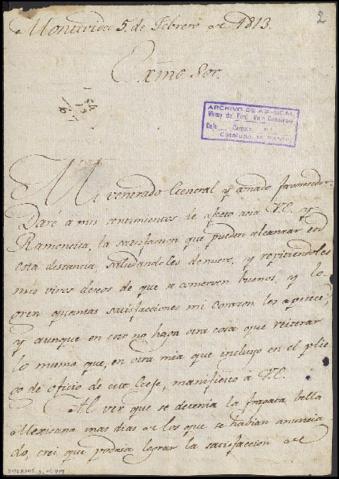 2
Montevideo 5, de Febrero de 1813.
Exmo Sor.
ARCHIVO DE ABASCAL
Mi venerado General y amado favorecedor
Daré a mis sentimientos de afecto acia V.E. y
Ramoncita, la satisfaccion que pueden alcanzar en
esta distancia, saludandoles de nuevo, y repitiendoles
mis vivos deseos de que se conserven buenos, y lo
gren quantas satisfacciones mi corazon les apetece;
y aunque en esto no haga otra cosa que reiterar
lo mismo que, en otra mia que incluyo en el plie
go de oficio de este Gefe, manifiesto a V.E.
Al ver que se detenia la fragata bella
Mexicana mas dias de los que se habian anuncia
do, crei que podria lograr la satisfaccion de